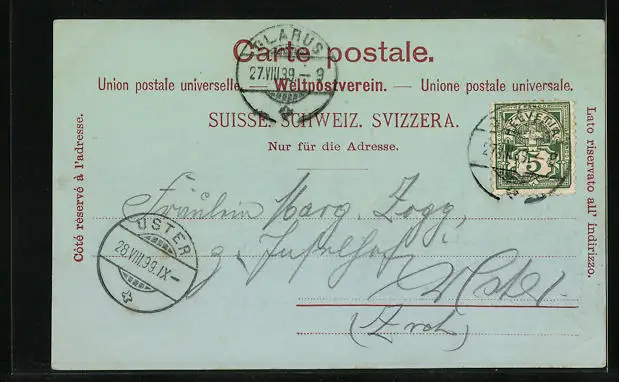 Carte postale.
GLARUS
27.VIII.99.-9
Union postale universelle. — Weltpostverein. — Unione postale universale.
SUISSE. SCHWEIZ. SVIZZERA.
Nur für die Adresse.
Côté réservé à l'adresse.
Lato riservato all' indirizzo.
5
Fräulein Marg. Zogg,
z.
Uster
(Zrch)
USTER
28.VIII.99.IX-